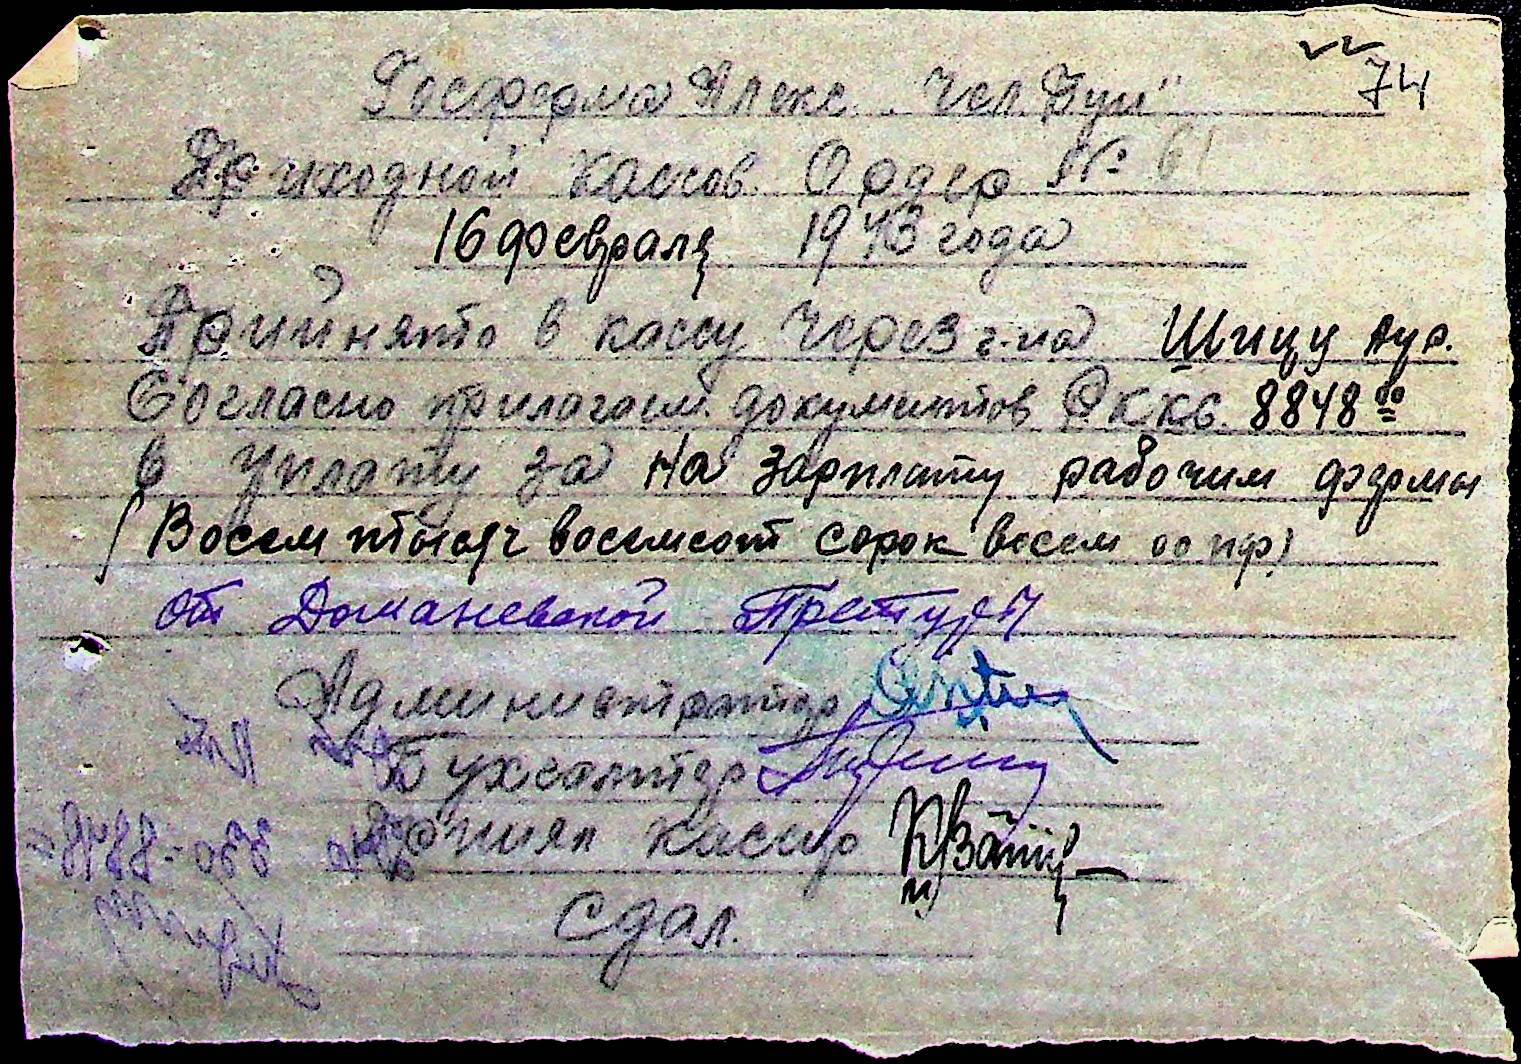 74
Госферма Алекс. "Чел. Буй"
Приходной кассов. Ордер № 61
16 февраля 1943 года
Прийнято в кассу через г-на Шицу Аур.
Согласно прилагаем. документов Р.ККС. 8848 00
в уплату за на зарплату рабочим фермы
(Восем тысяч восемсот сорок восем 00 пф)
от Доманевской Претуры
Администратор
Бухгалтер
Принял кассир
Сдал.